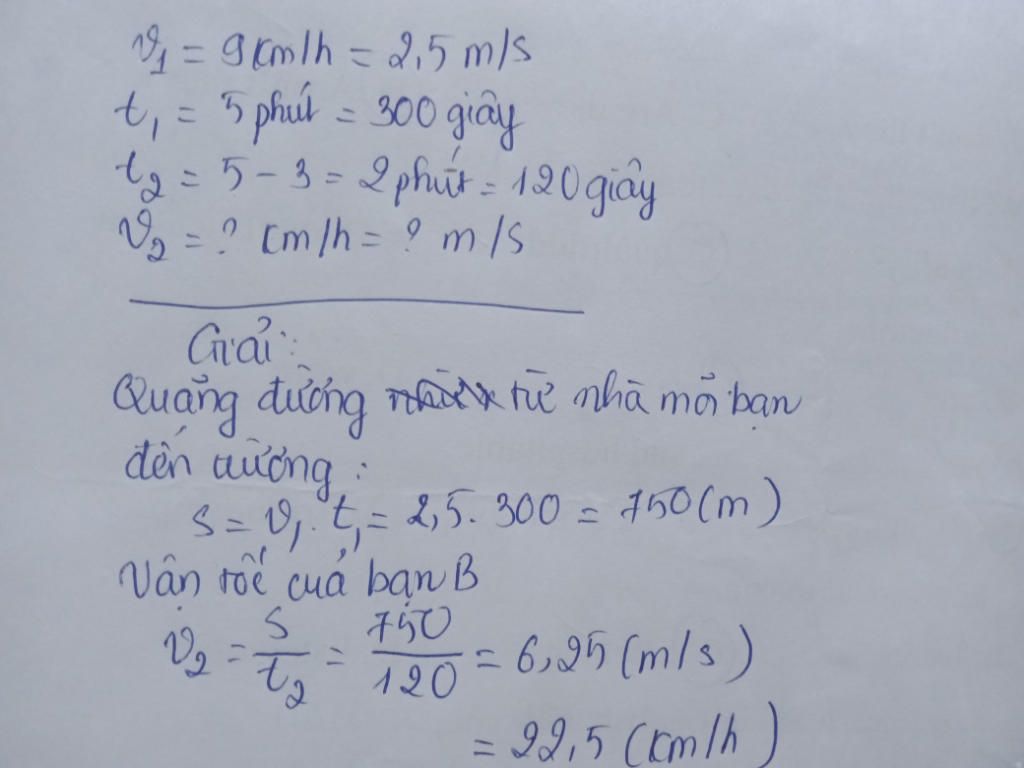 v₁ = 9 km/h = 2,5 m/s
t₁ = 5 phút = 300 giây
t₂ = 5 - 3 = 2 phút = 120 giây
v₂ = ? km/h = ? m/s
Giải:
Quãng đường từ nhà mỗi bạn
đến trường:
s = v₁. t₁ = 2,5. 300 = 750 (m)
Vận tốc của bạn B
v₂ = s/t₂ = 750/120 = 6,25 (m/s)
= 22,5 (km/h)